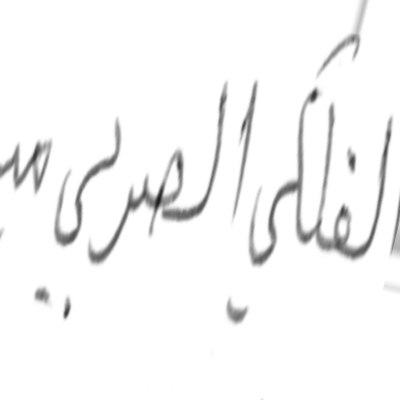 الفلكي الصربي